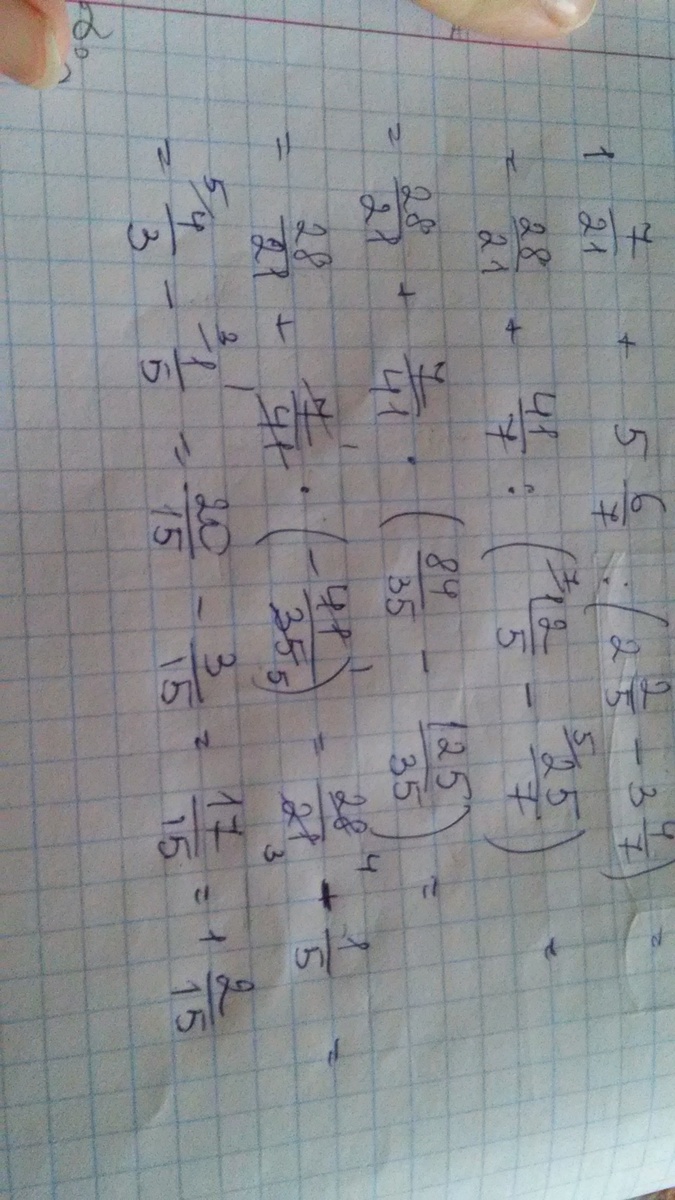 1 7/21 + 5 6/7 : (2 2/5 - 3 4/7) =
= 28/21 + 41/7 : (⁷12/5 - ⁵25/7) =
= 28/21 + 7/41 · (84/35 - 125/35) =
= 28/21 + 7/41 · (- 41/35) = 28/21 + 1/5 =
= ⁵4/3 - ³1/5 = 20/15 - 3/15 = 17/15 = 1 2/15